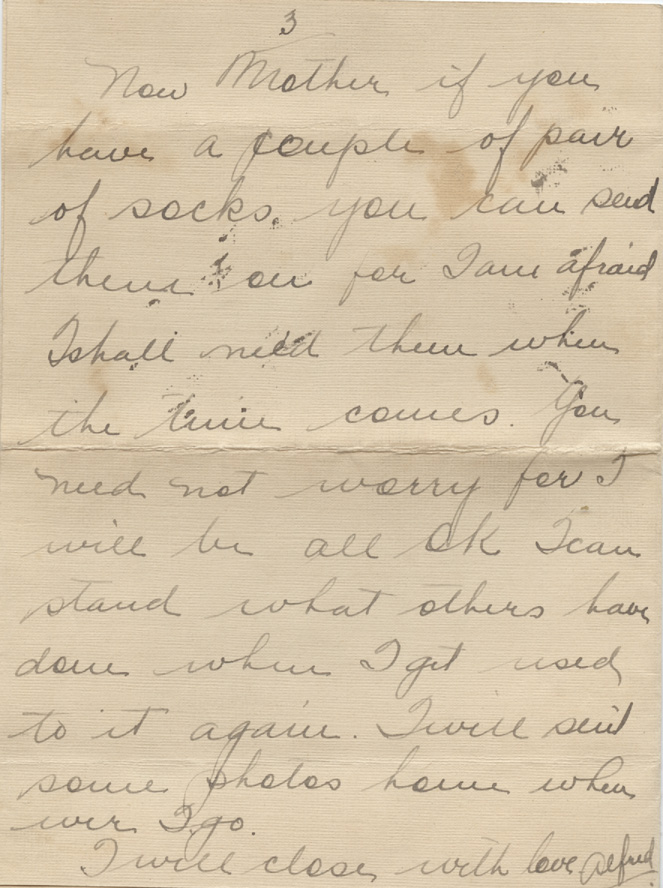 3
Now Mother if you
have a couple of pair
of socks. you can send
them on for I am afraid
I shall need them when
the time comes. You
need not worry for I
will be all OK I can
stand what others have
done when I get used
to it again. I will send
some photos home when
ever I go.
I will close with love Alfred